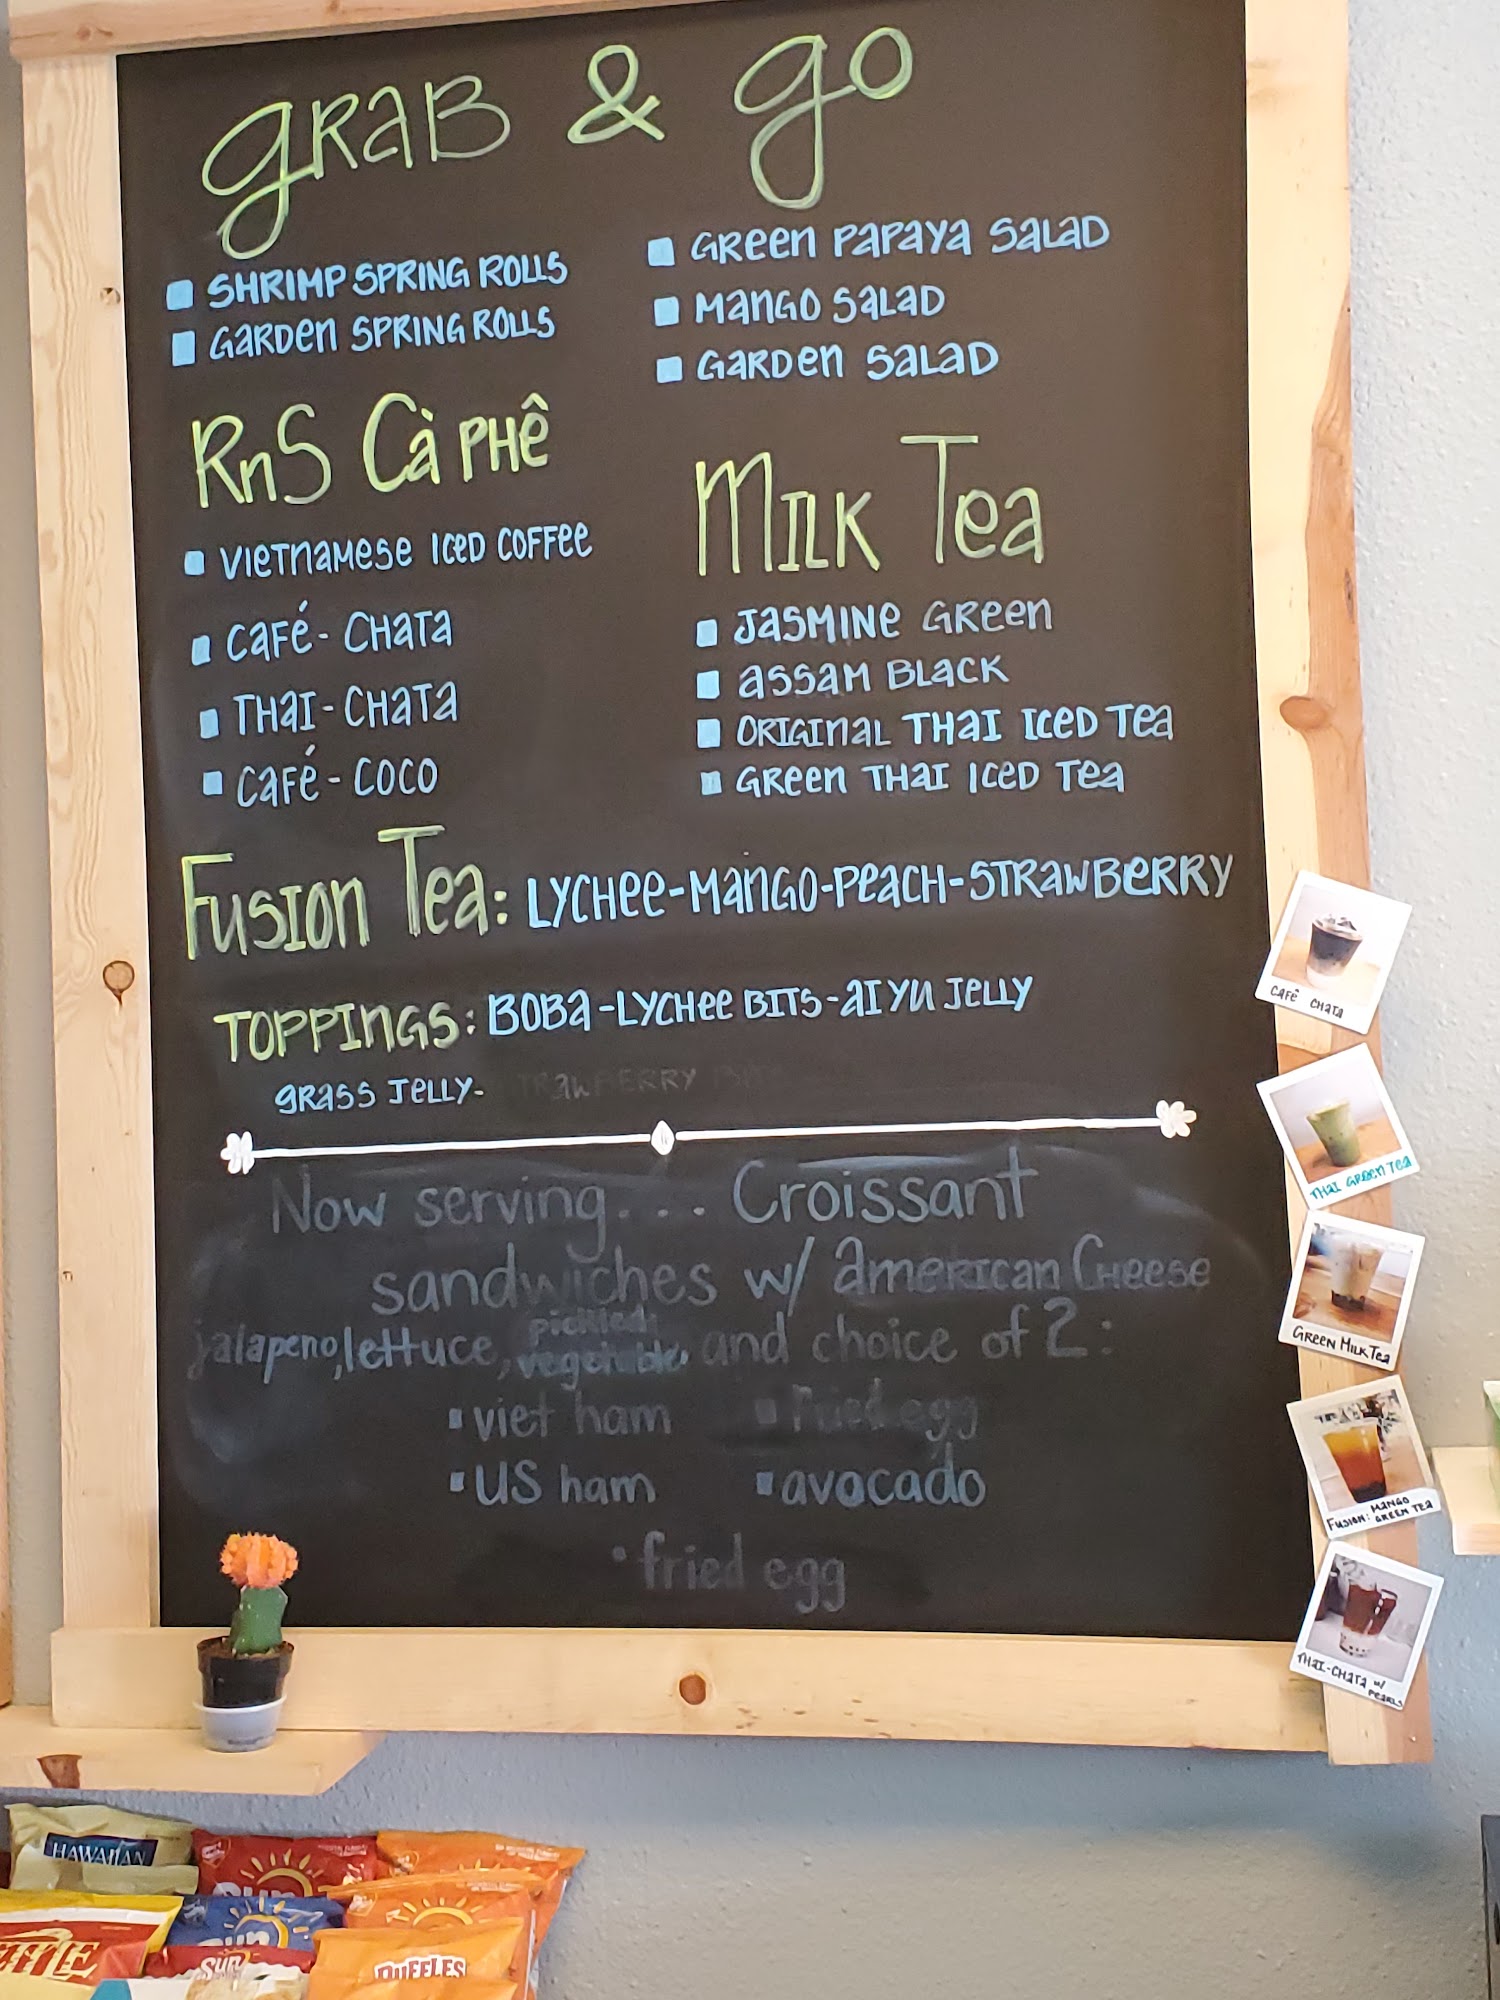 GRAB & GO
SHRIMP SPRING ROLLS
GARDEN SPRING ROLLS
GREEN PAPAYA SALAD
MANGO SALAD
GARDEN SALAD
RnS Cà PHÊ
VIETNAMESE ICED COFFEE
CAFÉ - CHATA
THAI - CHATA
CAFÉ - COCO
MILK TEA
JASMINE GREEN
ASSAM BLACK
ORIGINAL THAI ICED TEA
GREEN THAI ICED TEA
FUSION TEA: LYCHEE-MANGO-PEACH-STRAWBERRY
TOPPINGS: BOBA-LYCHEE BITS-AI YU JELLY
GRASS JELLY-
Now serving... Croissant
sandwiches w/ american Cheese
pickled
jalapeno, lettuce, vegetable, and choice of 2:
viet ham
US ham
fried egg
avocado
fried egg
CAFÊ CHATA
THAI GREEN TEA
GREEN MILK TEA
FUSION: MANGO GREEN TEA
THAI-CHATA w/ PEARLS
HAWAIIAN
Sun
Sun
Sun
RUFFLES